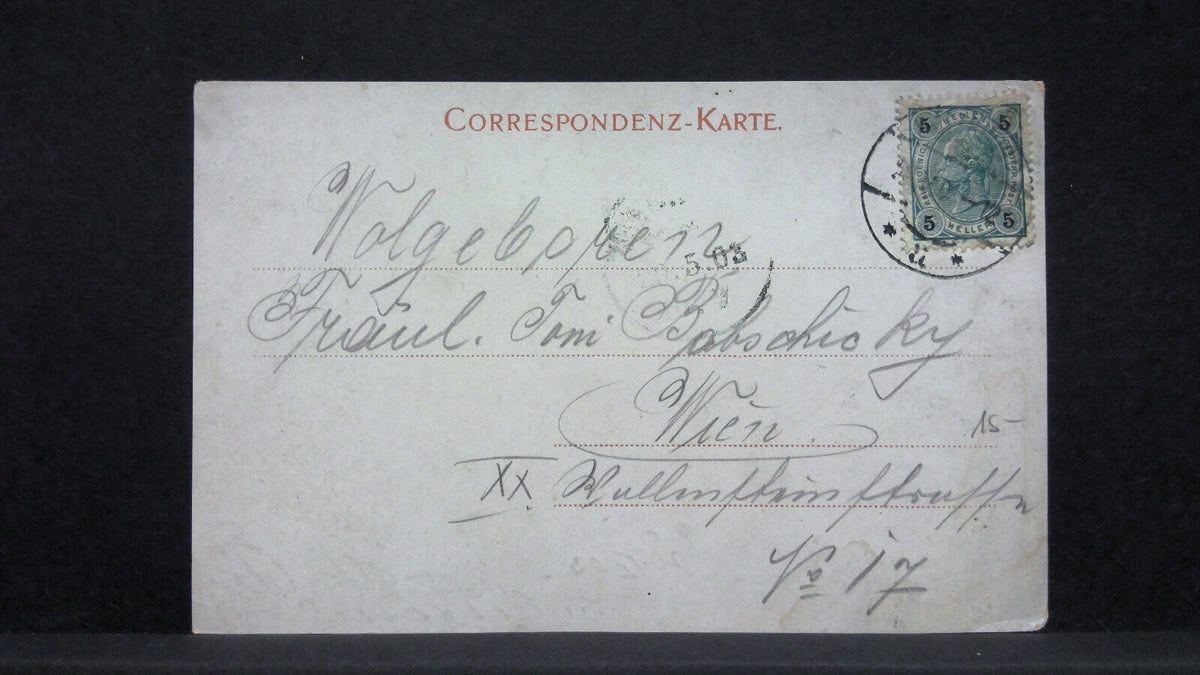 CORRESPONDENZ-KARTE.
5 5
5 5
HELLER
Wolgeboren
5.03
Fräul. Toni Babschicky
Wien.
15
XX Wallensteinstrasse
No 17